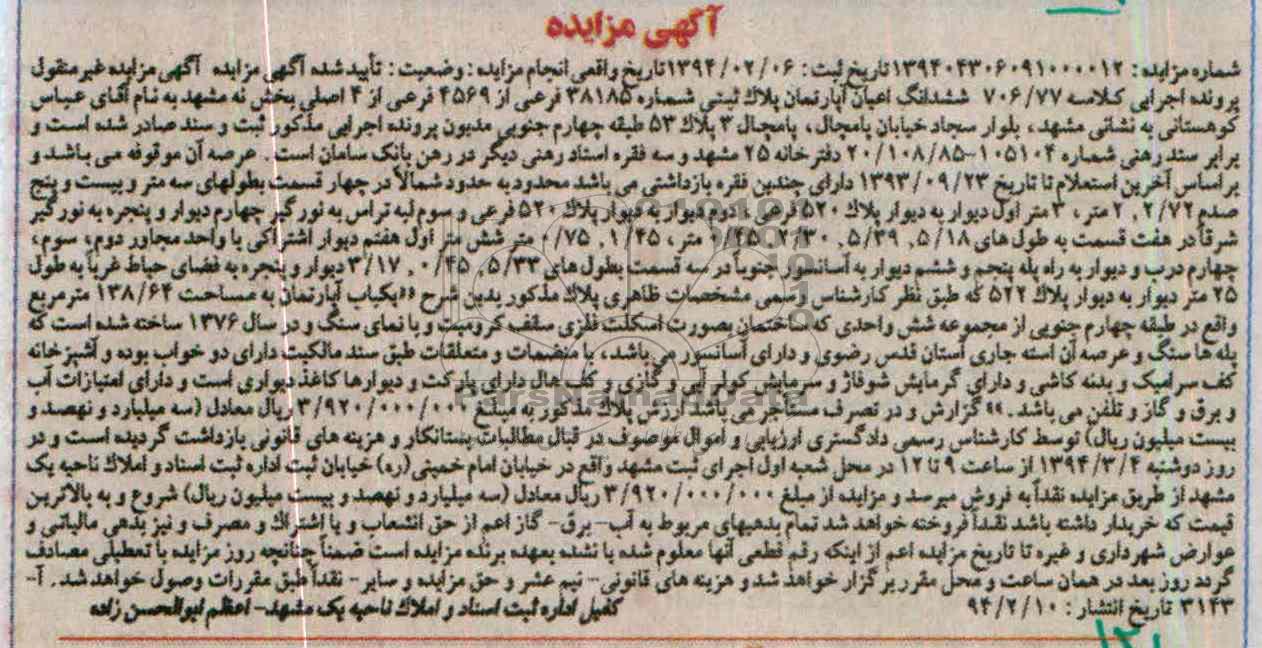 آگهی مزایده
شماره مزایده : ۱۳۹۴۰۴۳۰۶۰۹۱۰۰۰۰۱۲ تاریخ ثبت : ۱۳۹۴/۰۲/۰۶ تاریخ واقعی انجام مزایده : وضعیت : تأیید شده آگهی مزایده آگهی مزایده غیر منقول
پرونده اجرایی کلاسه ۷۰۶/۷۷ ششدانگ اعیان آپارتمان پلاک ثبتی شماره ۳۸۱۸۵ فرعی از ۴۵۶۹ فرعی از ۴ اصلی بخش نه مشهد به نام آقای عباس
کوهستانی به نشانی مشهد، بلوار سجاد خیابان بامچال، بامچال ۳ پلاک ۵۳ طبقه چهارم جنوبی مدیون پرونده اجرایی مذکور ثبت و سند صادر شده است و
برابر سند رهنی شماره ۱۰۵۱۰۴-۲۰/۱۰۸/۸۵ دفترخانه ۲۵ مشهد و سه فقره اسناد رهنی دیگر در رهن بانک سامان است . عرصه آن موقوفه می باشد و
بر اساس آخرین استعلام تا تاریخ ۱۳۹۳/۰۹/۲۳ دارای چندین فقره بازداشتی می باشد محدود به حدود شمالاً در چهار قسمت بطولهای سه متر و بیست و پنج
صدم ۲/۷۲ , ۲ متر ، ۳ متر اول دیوار به دیوار پلاک ۵۲۰ فرعی ، دوم دیوار به دیوار پلاک ۵۲۰ فرعی و سوم لبه تراس به نورگیر چهارم دیوار و پنجره به نورگیر
شرقاً در هفت قسمت به طول های ۵/۱۸ , ۵/۳۹ , ۲/۳۰ , ۰/۴۵ متر ، ۱/۴۵ , ۰/۷۵ متر شش متر اول هفتم دیوار اشتراکی با واحد مجاور دوم، سوم،
چهارم درب و دیوار به راه پله پنجم و ششم دیوار به آسانسور جنوباً در سه قسمت بطول های ۵/۳۳ , ۰/۴۵ , ۳/۱۷ دیوار و پنجره به فضای حیاط غرباً به طول
۲۵ متر دیوار به دیوار پلاک ۵۲۲ که طبق نظر کارشناس رسمی مشخصات ظاهری پلاک مذکور بدین شرح «یکباب آپارتمان به مساحت ۱۳۸/۶۴ مترمربع
واقع در طبقه چهارم جنوبی از مجموعه شش واحدی که ساختمان بصورت اسکلت فلزی سقف کرومیت و با نمای سنگ و در سال ۱۳۷۶ ساخته شده است که
پله ها سنگ و عرصه آن استه جاری آستان قدس رضوی و دارای آسانسور می باشد، با منضمات و متعلقات طبق سند مالکیت دارای دو خواب بوده و آشپزخانه
کف سرامیک و بدنه کاشی و دارای گرمایش شوفاژ و سرمایش کولر آبی و گازی و کف هال دارای پارکت و دیوارها کاغذ دیواری است و دارای امتیازات آب
و برق و گاز و تلفن می باشد .» گزارش و در تصرف مستأجر می باشد ارزش پلاک مذکور به مبلغ ۳/۹۲۰/۰۰۰/۰۰۰ ریال معادل (سه میلیارد و نهصد و
بیست میلیون ریال) توسط کارشناس رسمی دادگستری ارزیابی و اموال موصوف در قبال مطالبات بستانکار و هزینه های قانونی بازداشت گردیده است و در
روز دوشنبه ۱۳۹۴/۳/۴ از ساعت ۹ تا ۱۲ در محل شعبه اول اجرای ثبت مشهد واقع در خیابان امام خمینی (ره) خیابان ثبت اداره ثبت اسناد و املاک ناحیه یک
مشهد از طریق مزایده نقداً به فروش میرسد و مزایده از مبلغ ۳/۹۲۰/۰۰۰/۰۰۰ ریال معادل (سه میلیارد و نهصد و بیست میلیون ریال) شروع و به بالاترین
قیمت که خریدار داشته باشد نقداً فروخته خواهد شد تمام بدهیهای مربوط به آب- برق- گاز اعم از حق انشعاب و یا اشتراک و مصرف و نیز بدهی مالیاتی و
عوارض شهرداری و غیره تا تاریخ مزایده اعم از اینکه رقم قطعی آنها معلوم شده یا نشده بعهده برنده مزایده است ضمناً چنانچه روز مزایده با تعطیلی مصادف
گردد روز بعد در همان ساعت و محل مقرر برگزار خواهد شد و هزینه های قانونی- نیم عشر و حق مزایده و سایر- نقداً طبق مقررات وصول خواهد شد . آ-
۳۱۴۳ تاریخ انتشار : ۹۴/۲/۱۰ کفیل اداره ثبت اسناد و املاک ناحیه یک مشهد- اعظم ابوالحسن زاده
ParsNamadData